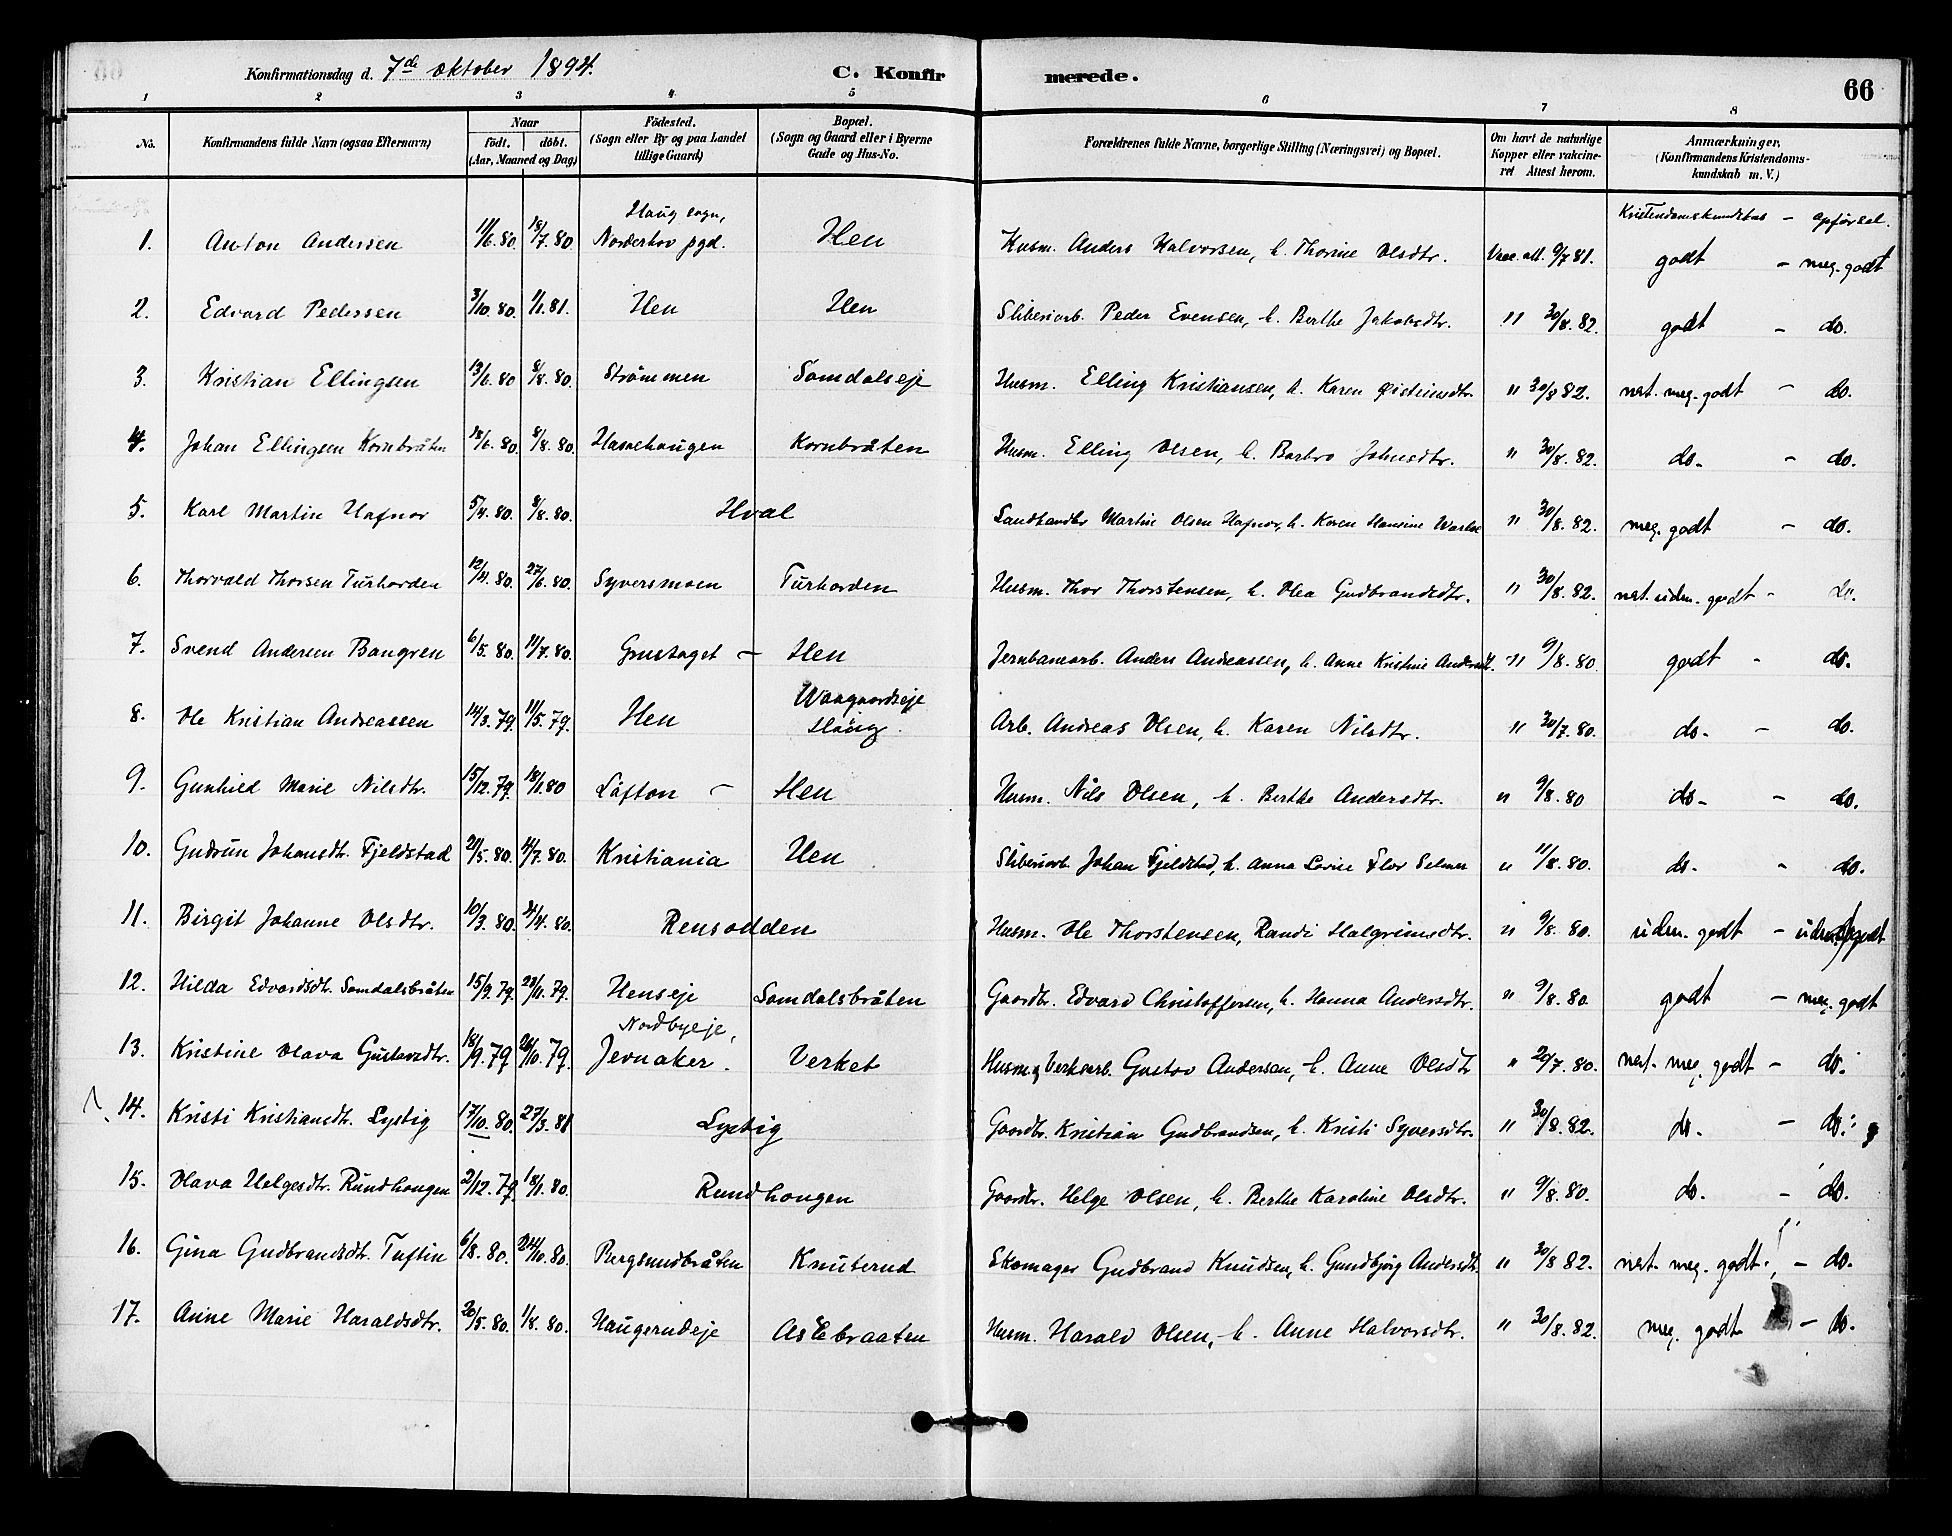 Konfirmationsdag d. 7de oktober 1894. C. Konfirmerede. 66
1 2 3 4 5 6 7 8
No. Konfirmandens fulde Navn (ogsaa Efternavn) Naar født. døbt. (Aar, Maaned og Dag) Fødested. (Sogn eller By og paa Landet tillige Gaard) Bopæl. (Sogn og Gaard eller i Byerne Gade og Hus-No. Forældrenes fulde Navne, borgerlige Stilling (Næringsvei) og Bopæl. Om havt de naturlige Kopper eller vakcineret Attest herom. Anmærkninger, (Konfirmandens Kristendomskundskab m. V.)
Haug sogn, Kristendomskundskab - opførsel.
1. Anton Andersen 11/6.80. 18/7.80 Norderhov pgd. Hen Husm. Anders Halvorsen, h. Thorine Olsdtr. Vacc. att. 9/7 81. godt - meg. godt
2. Edvard Pedersen 3/10.80. 1/1.81. Hen Hen Sliberiarb. Peder Evensen, h. Berthe Jakobsdtr. " 30/8.82. godt - do.
3. Kristian Ellingsen 13/6.80 8/8.80. Strømmen Somdalseje Husm. Elling Kristiansen, h. Karen Øisteinsdtr. " 30/8 82. nest. meg. godt - do.
4. Johan Ellingsen Kornbråten 18/6.80. 8/8.80. Hassehaugen Kornbråten Husm. Elling Olsen, h. Barbro Johnsdtr. " 30/8.82. do. - do.
5. Karl Martin Hafnor 5/4.80. 8/8.80. Hval Landhandler Martin Olsen Hafnor, h. Karen Hansine " 30/8.82. meg. godt - do.
6. Thorvald Thorsen Turhorden 12/4.80. 27/6.80. Syversmoen Turhorden Husm. Thor Thorstensen, h. Olea Gudbrandsdtr. " 30/8.82. nest. uden. godt - do.
7. Svend Andersen Bangren 6/5.80. 11/7.80. Grustaget - Hen Jernbanearb. Anders Andreassen, h. Anne Kristine Andersdt. " 9/8.80. godt - do.
8. Ole Kristian Andreassen 14/3.79. 11/5.79. Hen Waagaardseje Haug. Arb. Andreas Olsen, h. Karen Nilsdtr. " 30/7.80. do. - do.
9. Gunhild Marie Nilsdtr. 15/12.79. 18/1.80 Låfton - Hen Husm. Nils Olsen, h. Berthe Andersdtr. " 9/8.80 do. - do.
10. Gudrun Johansdtr. Fjeldstad 21/5.80. 4/7.80. Kristiania Hen Sliberiarb. Johan Fjeldstad, h. Anna Lovise Flor Selmer " 11/8.80. do. - do.
11. Birgit Johanne Olsdtr. 10/3.80. 4/4.80. Rensodden Husm. Ole Thorstensen, Randi Halgrimsdtr. " 9/8.80. uden. godt - uden. godt
12. Hilda Edvardsdt. Somdalsbråten 15/9.79. 23/11.79. Henseje Somdalsbråten Gaardbr. Edvard Christoffersen, h. Hanna Andersdtr. " 9/8.80. godt - meg. godt
13. Kristine Olava Gustavsdtr. 18/9.79 26/10.79. Nordbyeje, Jevnaker. Verket Husm. og Verksarb. Gustav Andersen, h. Anne Olsdtr " 20/7.80. nest. meg. godt - do.
14. Kristi Kristiansdtr. Lystig 17/10.80. 27/3.81 Lystig Gaardbr. Kristian Gudbrandsen, h. Kristi Syversdtr. " 30/8.82. do. - do.
15. Olava Helgesdtr. Rundhaugen 2/12.79 18/1.80. Rundhaugen Gaardbr. Helge Olsen, h. Berthe Karoline Olsdtr. " 9/8.80. do. - do.
16. Gina Gudbrandsdtr. Tuftin 6/8.80. 24/10.80. Bergsundbråten Knuterud Skomager Gudbrand Knudsen, h. Gundbjørg Andersdtr. " 30/8 82. nest. meg. godt. - do.
17. Anne Marie Haraldsdtr. 20/5.80. 1/8.80. Haugerudeje Askebraaten Husm. Harald Olsen, h. Anne Halvorsdtr. " 30/8.82. meg. godt - do.